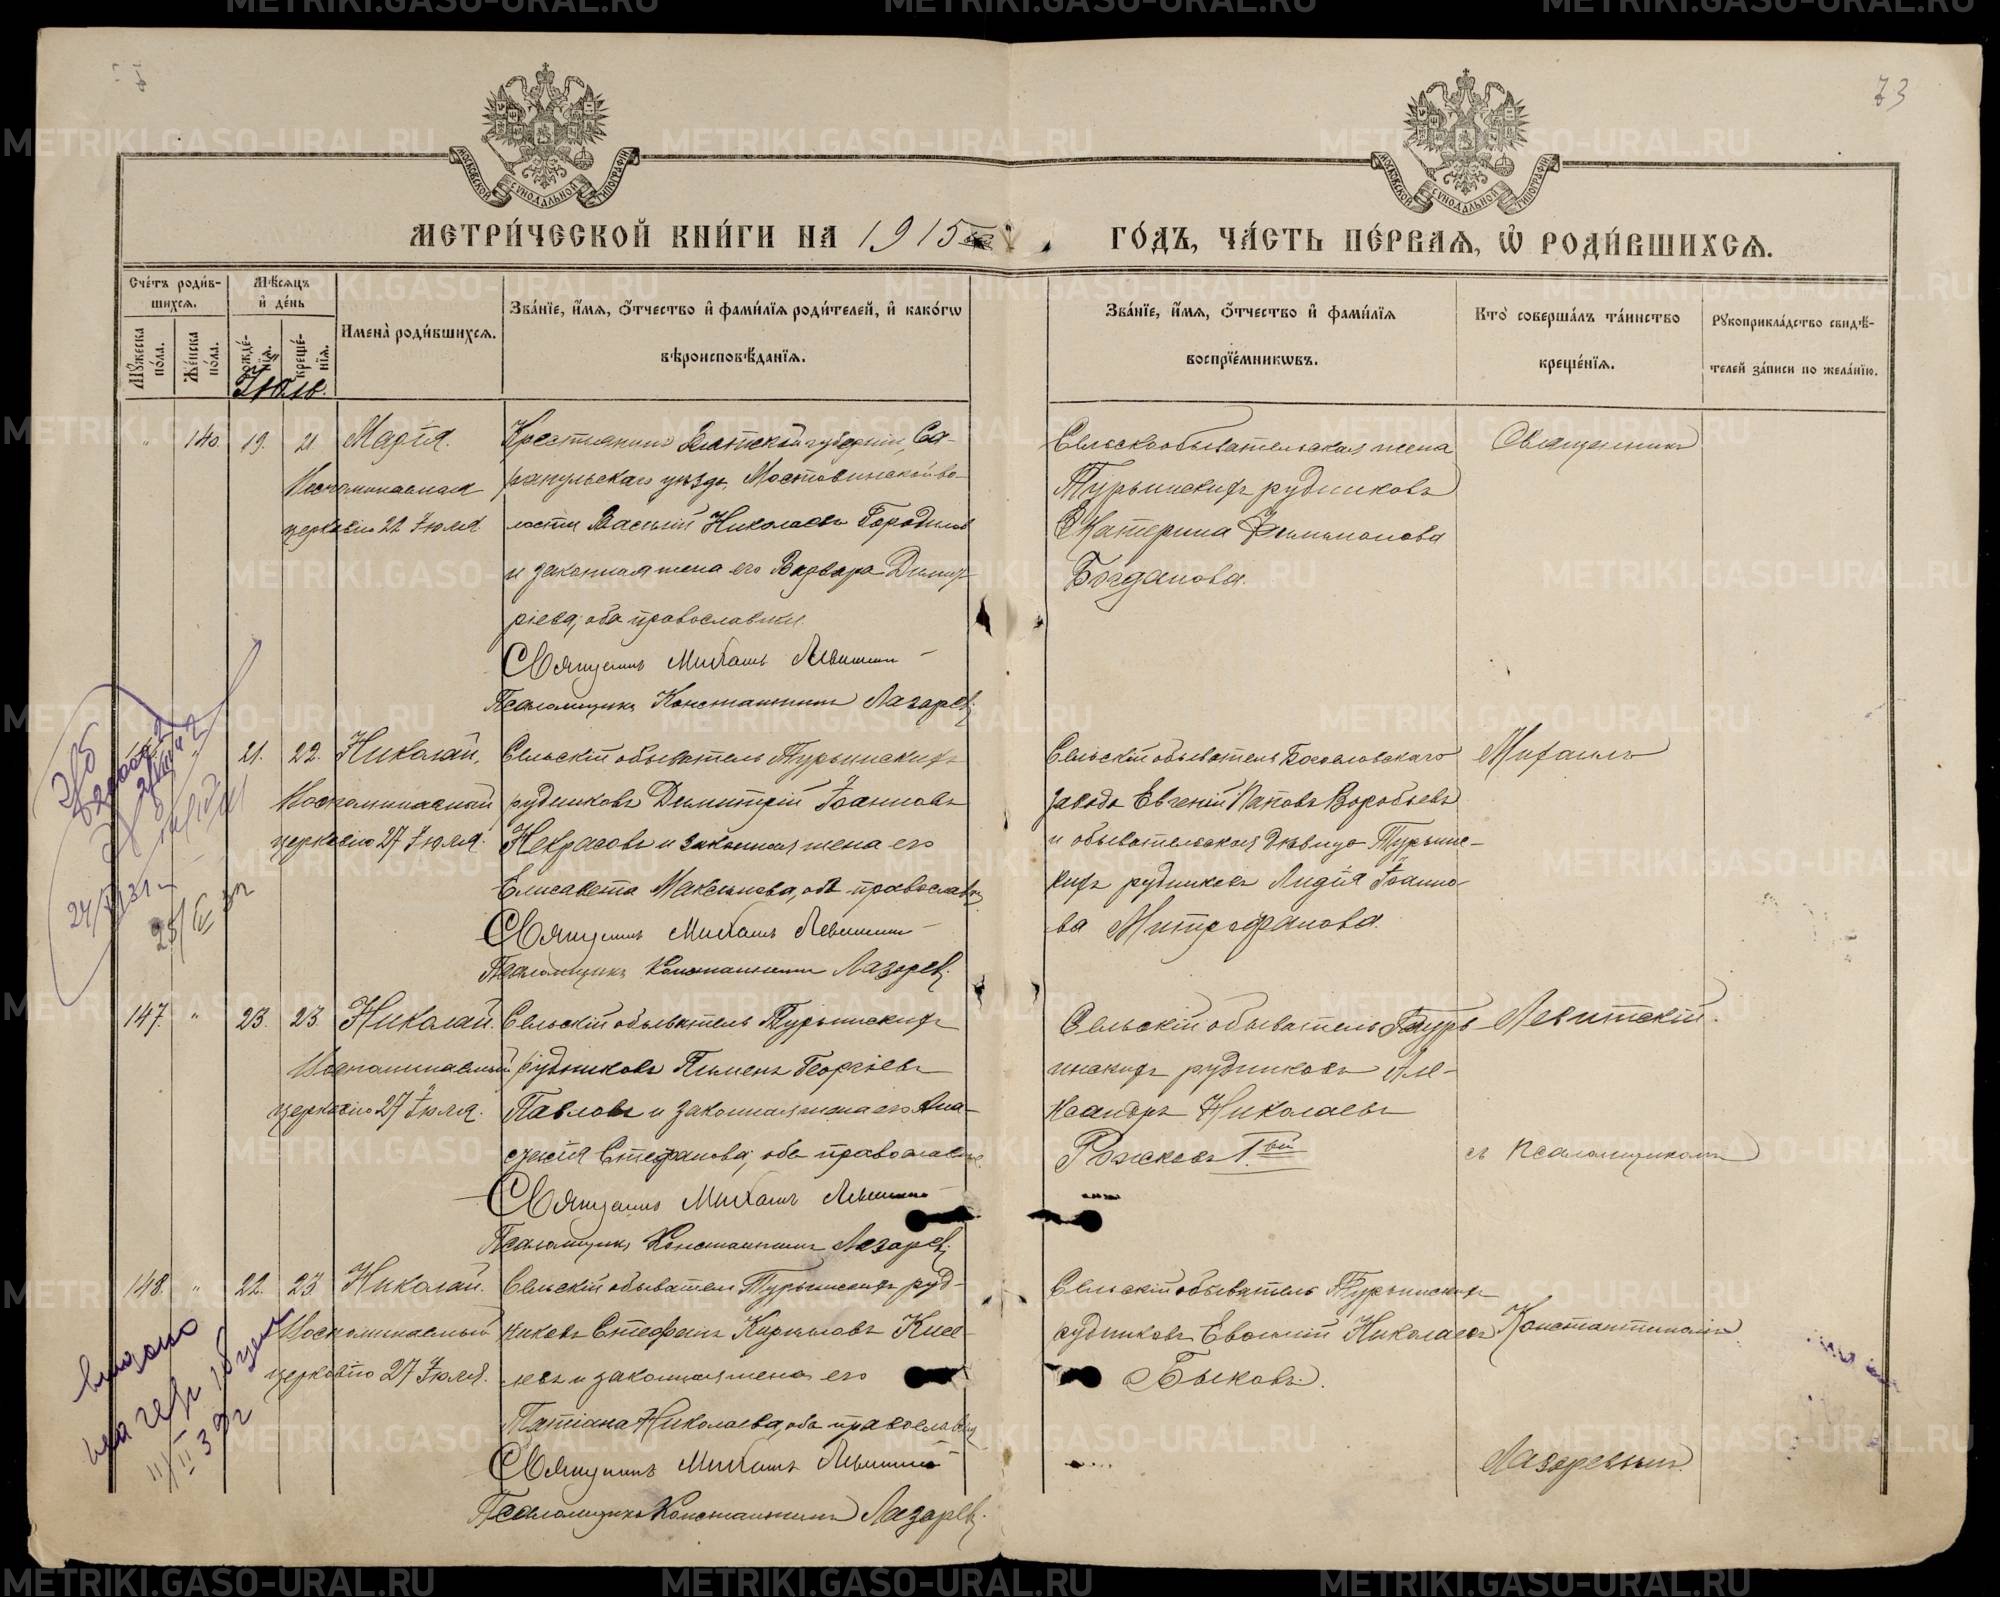 73
МОСКОВСКОЙ СУНОДАЛЬНОЙ ТИПОГРАФІИ
МОСКОВСКОЙ СУНОДАЛЬНОЙ ТИПОГРАФІИ
МЕТРИ́ЧЕСКОЙ КНИ́ГИ НА 1915
ГО́ДЪ, ЧА́СТЬ ПЕ́РВАѦ, Ѿ РОДИ́ВШИХСѦ.
Сче́тъ роди́в-
шихсѧ.
Мѣ́сѧцъ
и҆ де́нь
Мꙋ́жеска
по́ла.
Же́нска
по́ла.
рожде́-
нїѧ.
креще́-
нїѧ.
И҆мена̀ роди́вшихсѧ.
Зва́нїе, и҆́мѧ, ѻ҆́тчество и҆ фами́лїѧ роди́телей, и҆ како́гѡ
вѣроисповѣ́данїѧ.
Зва́нїе, и҆́мѧ, ѻ҆́тчество и҆ фами́лїѧ
воспрїе́мникѡвъ.
Кто̀ соверша́лъ та́инство
креще́нїѧ.
Рꙋкоприкла́дство свидѣ́-
телей за́писи по жела́нїю.
Іюль.
" 140. 19. 21. Марія.
Воспоминаемая
церковію 22 Іюля.
Крестьянинъ Вятской губерніи, Са-
рапульскаго уѣзда, Мостовинской во-
лости Василій Николаевъ Городилов
и законная жена его Варвара Димит-
ріева, оба православны.
Священникъ Михаилъ Левитскій
Псаломщикъ Константинъ Лазаревъ.
Сельскообывательская жена
Турьинскихъ рудниковъ
Екатерина Филимонова
Богданова.
Священникъ
21. 22. Николай.
Воспоминаемый
церковію 27 Іюля.
Сельскій обыватель Турьинскихъ
рудниковъ Димитрій Іоанновъ
Некрасовъ и законная жена его
Елисавета Максимова, оба православны
Священникъ Михаилъ Левитскій
Псаломщикъ Константинъ Лазаревъ.
Сельскій обыватель Богословскаго
завода Евгеній Воробьевъ
и обывательская дѣвица Турьинс-
кихъ рудниковъ Лидія Іоанно-
ва Митрофанова.
Михаилъ
147. " 23. 23. Николай.
Воспоминаемый
церковію 27 Іюля.
Сельскій обыватель Турьинскихъ
рудниковъ Пименъ Георгіевъ
Павловъ и законная жена его Ана-
стасія Стефанова, оба православны.
Священникъ Михаилъ Левитскій
Псаломщикъ Константинъ Лазаревъ.
Сельскій обыватель Турь-
инскихъ рудниковъ Але-
ксандръ Николаевъ
Рожковъ 1-ый
Левитскій.
съ псаломщикомъ
148. " 22. 23. Николай.
Воспоминаемый
церковію 27 Іюля.
Сельскій обыватель Турьинскихъ руд-
никовъ Стефанъ Кирилловъ Кисе-
левъ и законная жена его
Татіана Николаева, оба православны
Священникъ Михаилъ Левитскій
Псаломщикъ Константинъ Лазаревъ.
Сельскій обыватель Турьинскихъ
рудниковъ Евфимій Николаевъ
Быковъ.
Константиномъ
Лазаревымъ.
METRIKI.GASO-URAL.RU